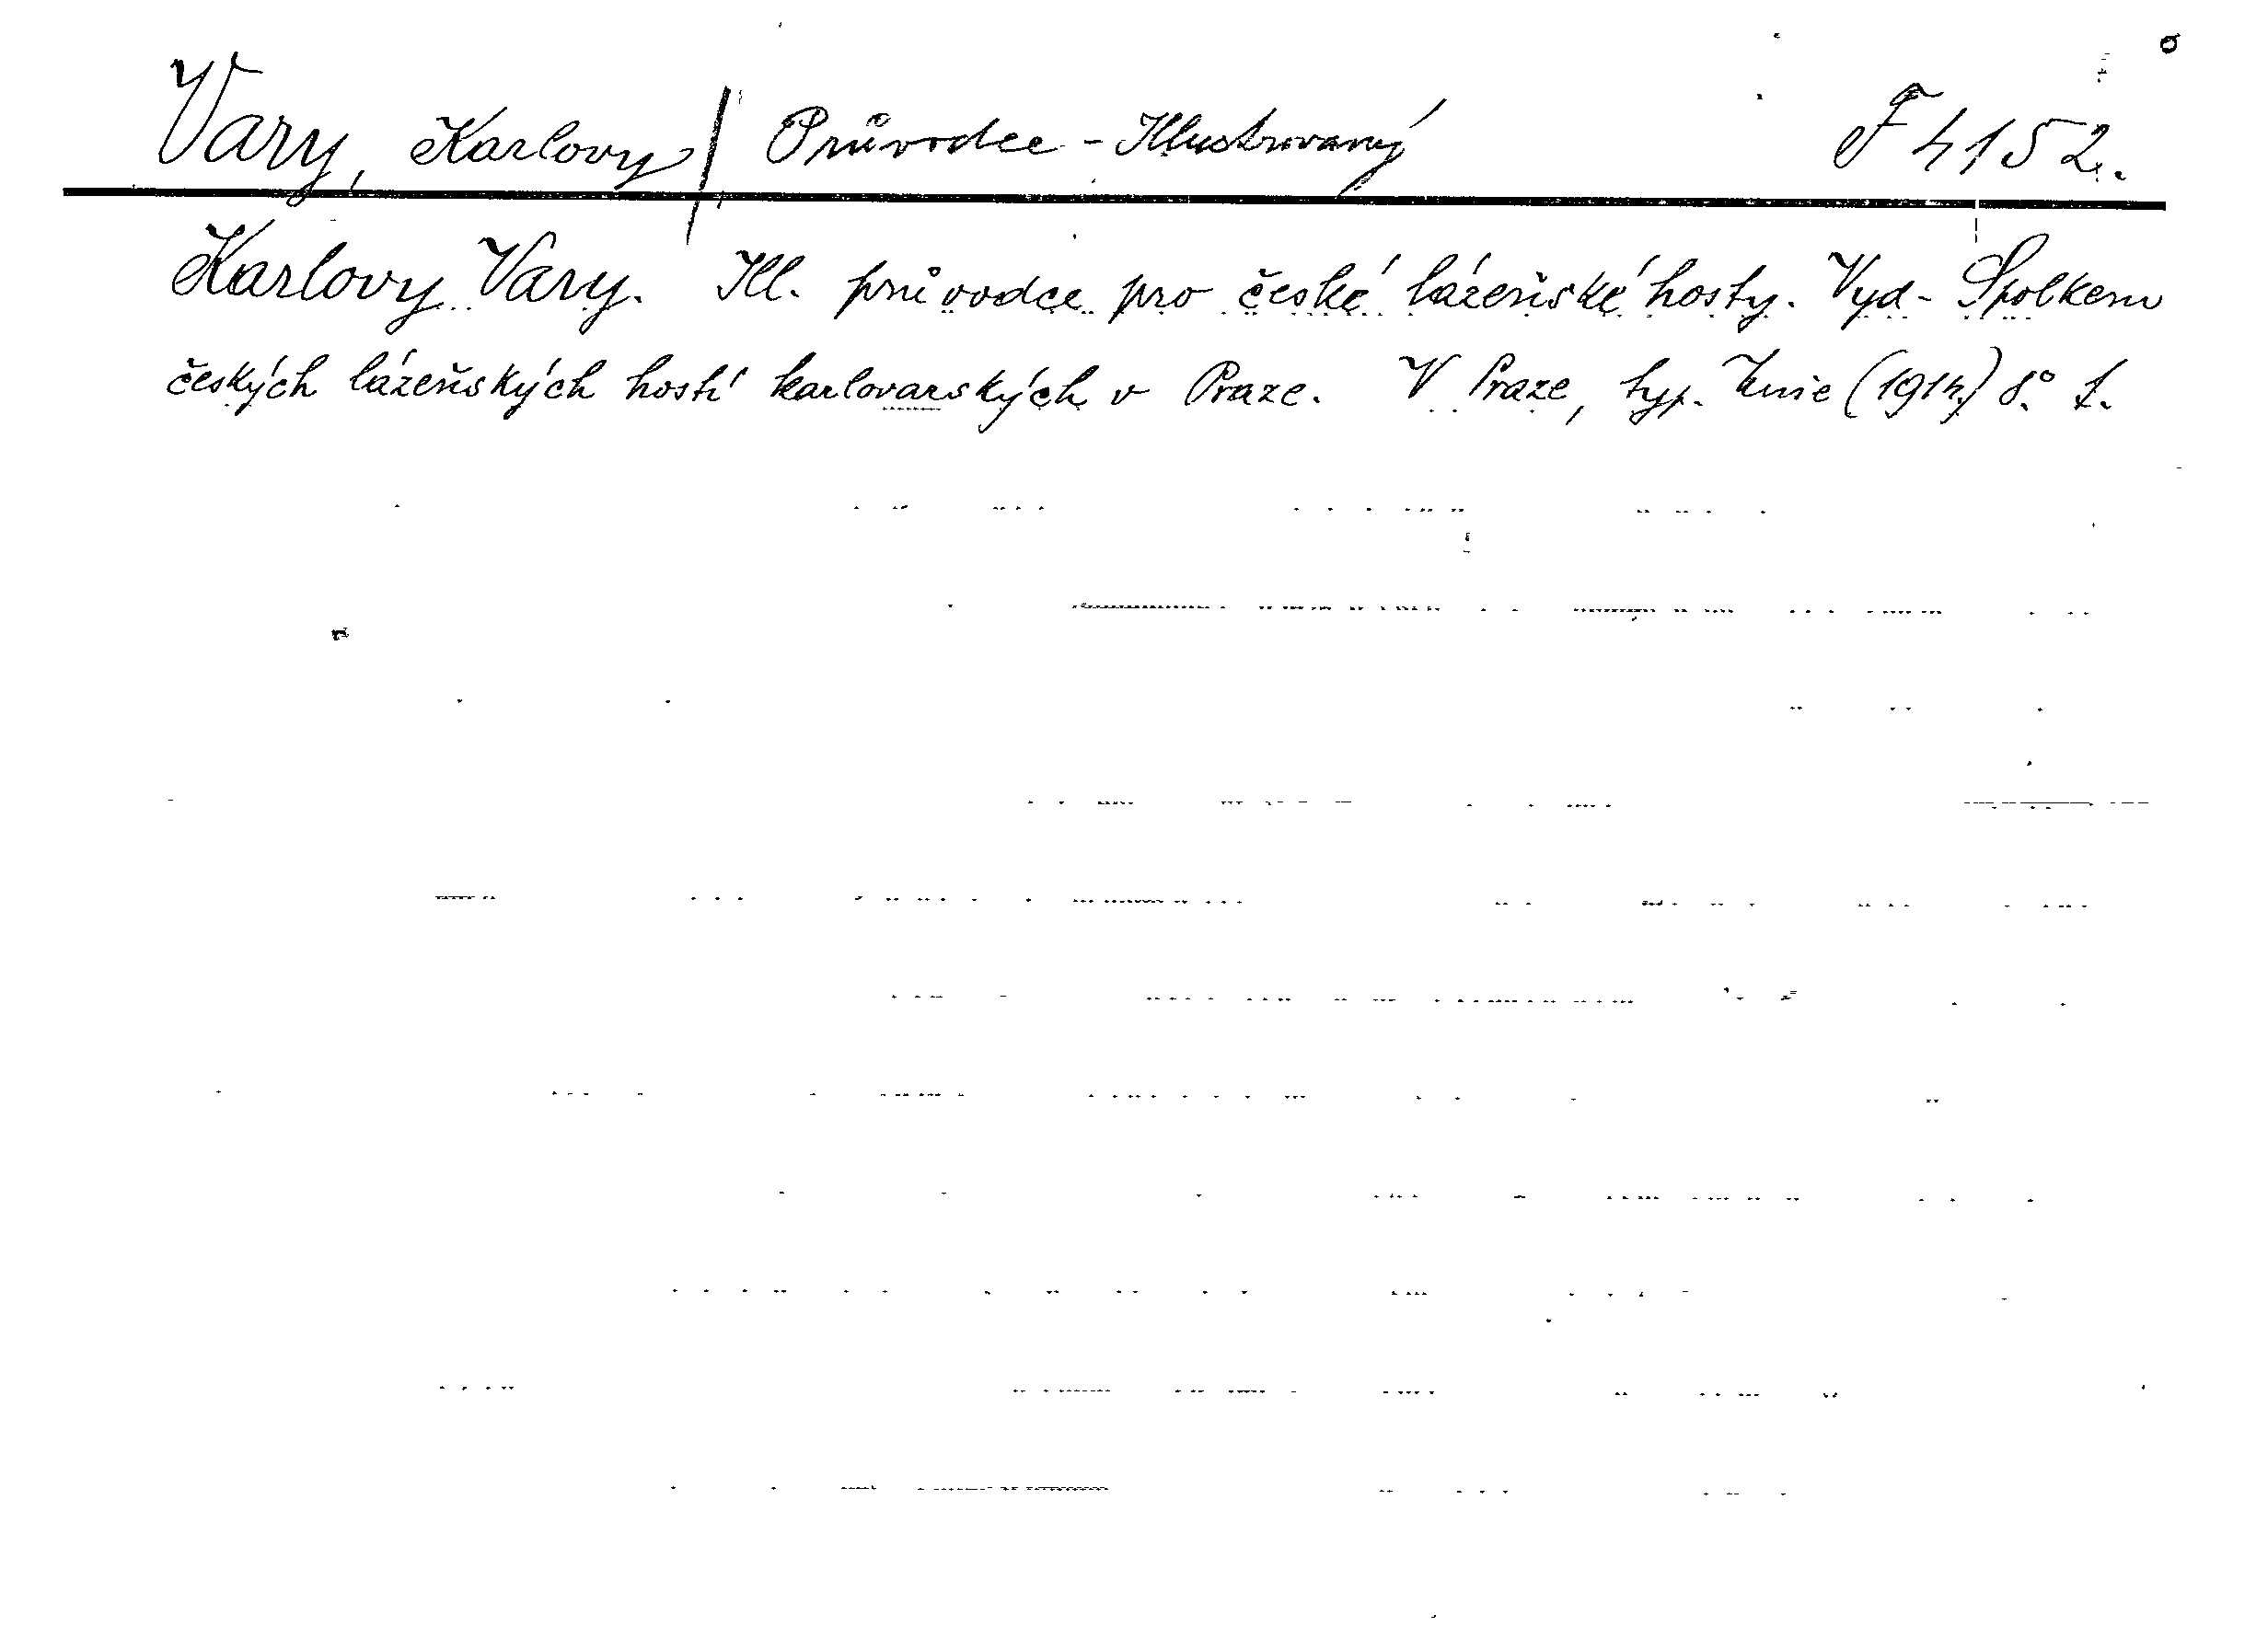 Vary, Karlovy / Průvodce - Illustrovaný F 4152.
Karlovy Vary. Ill. průvodce pro české lázeňské hosty. Vyd- Spolkem
českých lázeňských hostí karlovarských v Praze. V Praze, typ. Unie (1914.) 8.° 1.